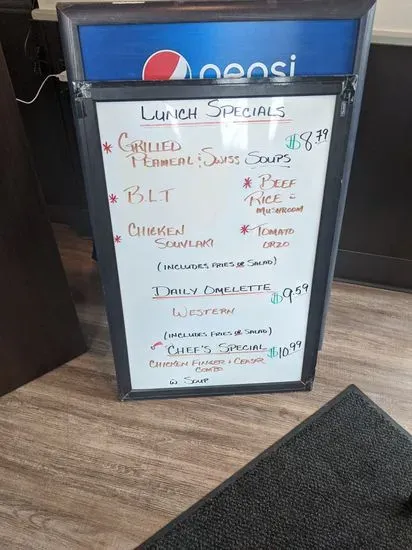 pepsi
LUNCH SPECIALS
* GRILLED $8.79
PEAMEAL & SWISS SOUPS
* B.L.T * BEEF
RICE &
MUSHROOM
* CHICKEN * TOMATO
SOUVLAKI ORZO
(INCLUDES FRIES OR SALAD)
DAILY OMELETTE $9.59
WESTERN
(INCLUDES FRIES OR SALAD)
* CHEF'S SPECIAL $10.99
CHICKEN FINGER & CEASAR
COMBO
W. SOUP